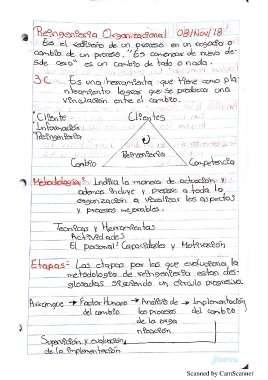 Reingenieria Organizacional 08/Nov/18
Es el rediseño de un proceso en un negocio o
cambio de un proceso. "Es comenzar de nuevo de-
sde cero" es un cambio de todo o nada.
3C Es una herramienta que tiene como pla-
nteamiento lograr que se produzca una
vinculación entre el cambio.
Cliente Clientes
Información
Reingenieria
Reingenieria
Cambio Competencia
Metodología: Indica la manera de actuación y
ademas incluye y prepara a toda la
organización a visualizar los aspectos
y procesos mejorables.
Tecnicas y Herramientas
Actividades
El personal: Capacidades y Motivación
Etapas: Las etapas por las que evoluciona la
metodologia de reingenieria estan des-
glosadas siguiendo un circulo progresivo.
Arranque → Factor Humano → Análisis de → Implementación
del cambio los procesos del cambio
de la orga
nización.
Supervisión y evaluación
de la implementación
Scanned by CamScanner